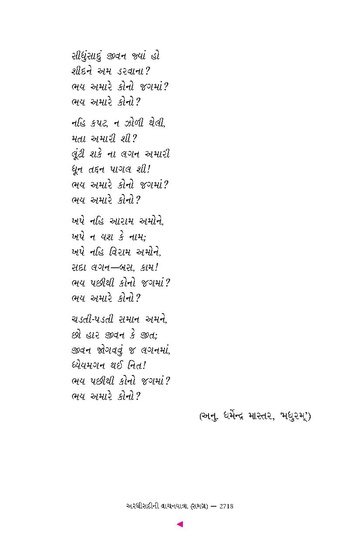 સીધુંસાદું જીવન જ્યાં હો
શીદને અમ ડરવાના?
ભય અમારે કોનો જગમાં?
ભય અમારે કોનો?
નહિ કપટ, ન ઝોળી થેલી,
મતા અમારી શી?
લૂંટી શકે ના લગન અમારી
ધૂન તદ્દન પાગલ શી!
ભય અમારે કોનો જગમાં?
ભય અમારે કોનો?
ખપે નહિ આરામ અમોને,
ખપે ન યશ કે નામ;
ખપે નહિ વિરામ અમોને,
સદા લગન—બસ, કામ!
ભય પછીથી કોનો જગમાં?
ભય અમારે કોનો?
ચડતી-પડતી સમાન અમને,
છો હાર જીવન કે જીત;
જીવન જોગવવું જ લગનમાં,
ધ્યેયમગન થઈ નિત!
ભય પછીથી કોનો જગમાં?
ભય અમારે કોનો?
(અનુ. ધર્મેન્દ્ર માસ્તર, ‘મધુરમ્’)
અરધીસદીની વાચનયાત્રા (સમગ્ર) — 2718